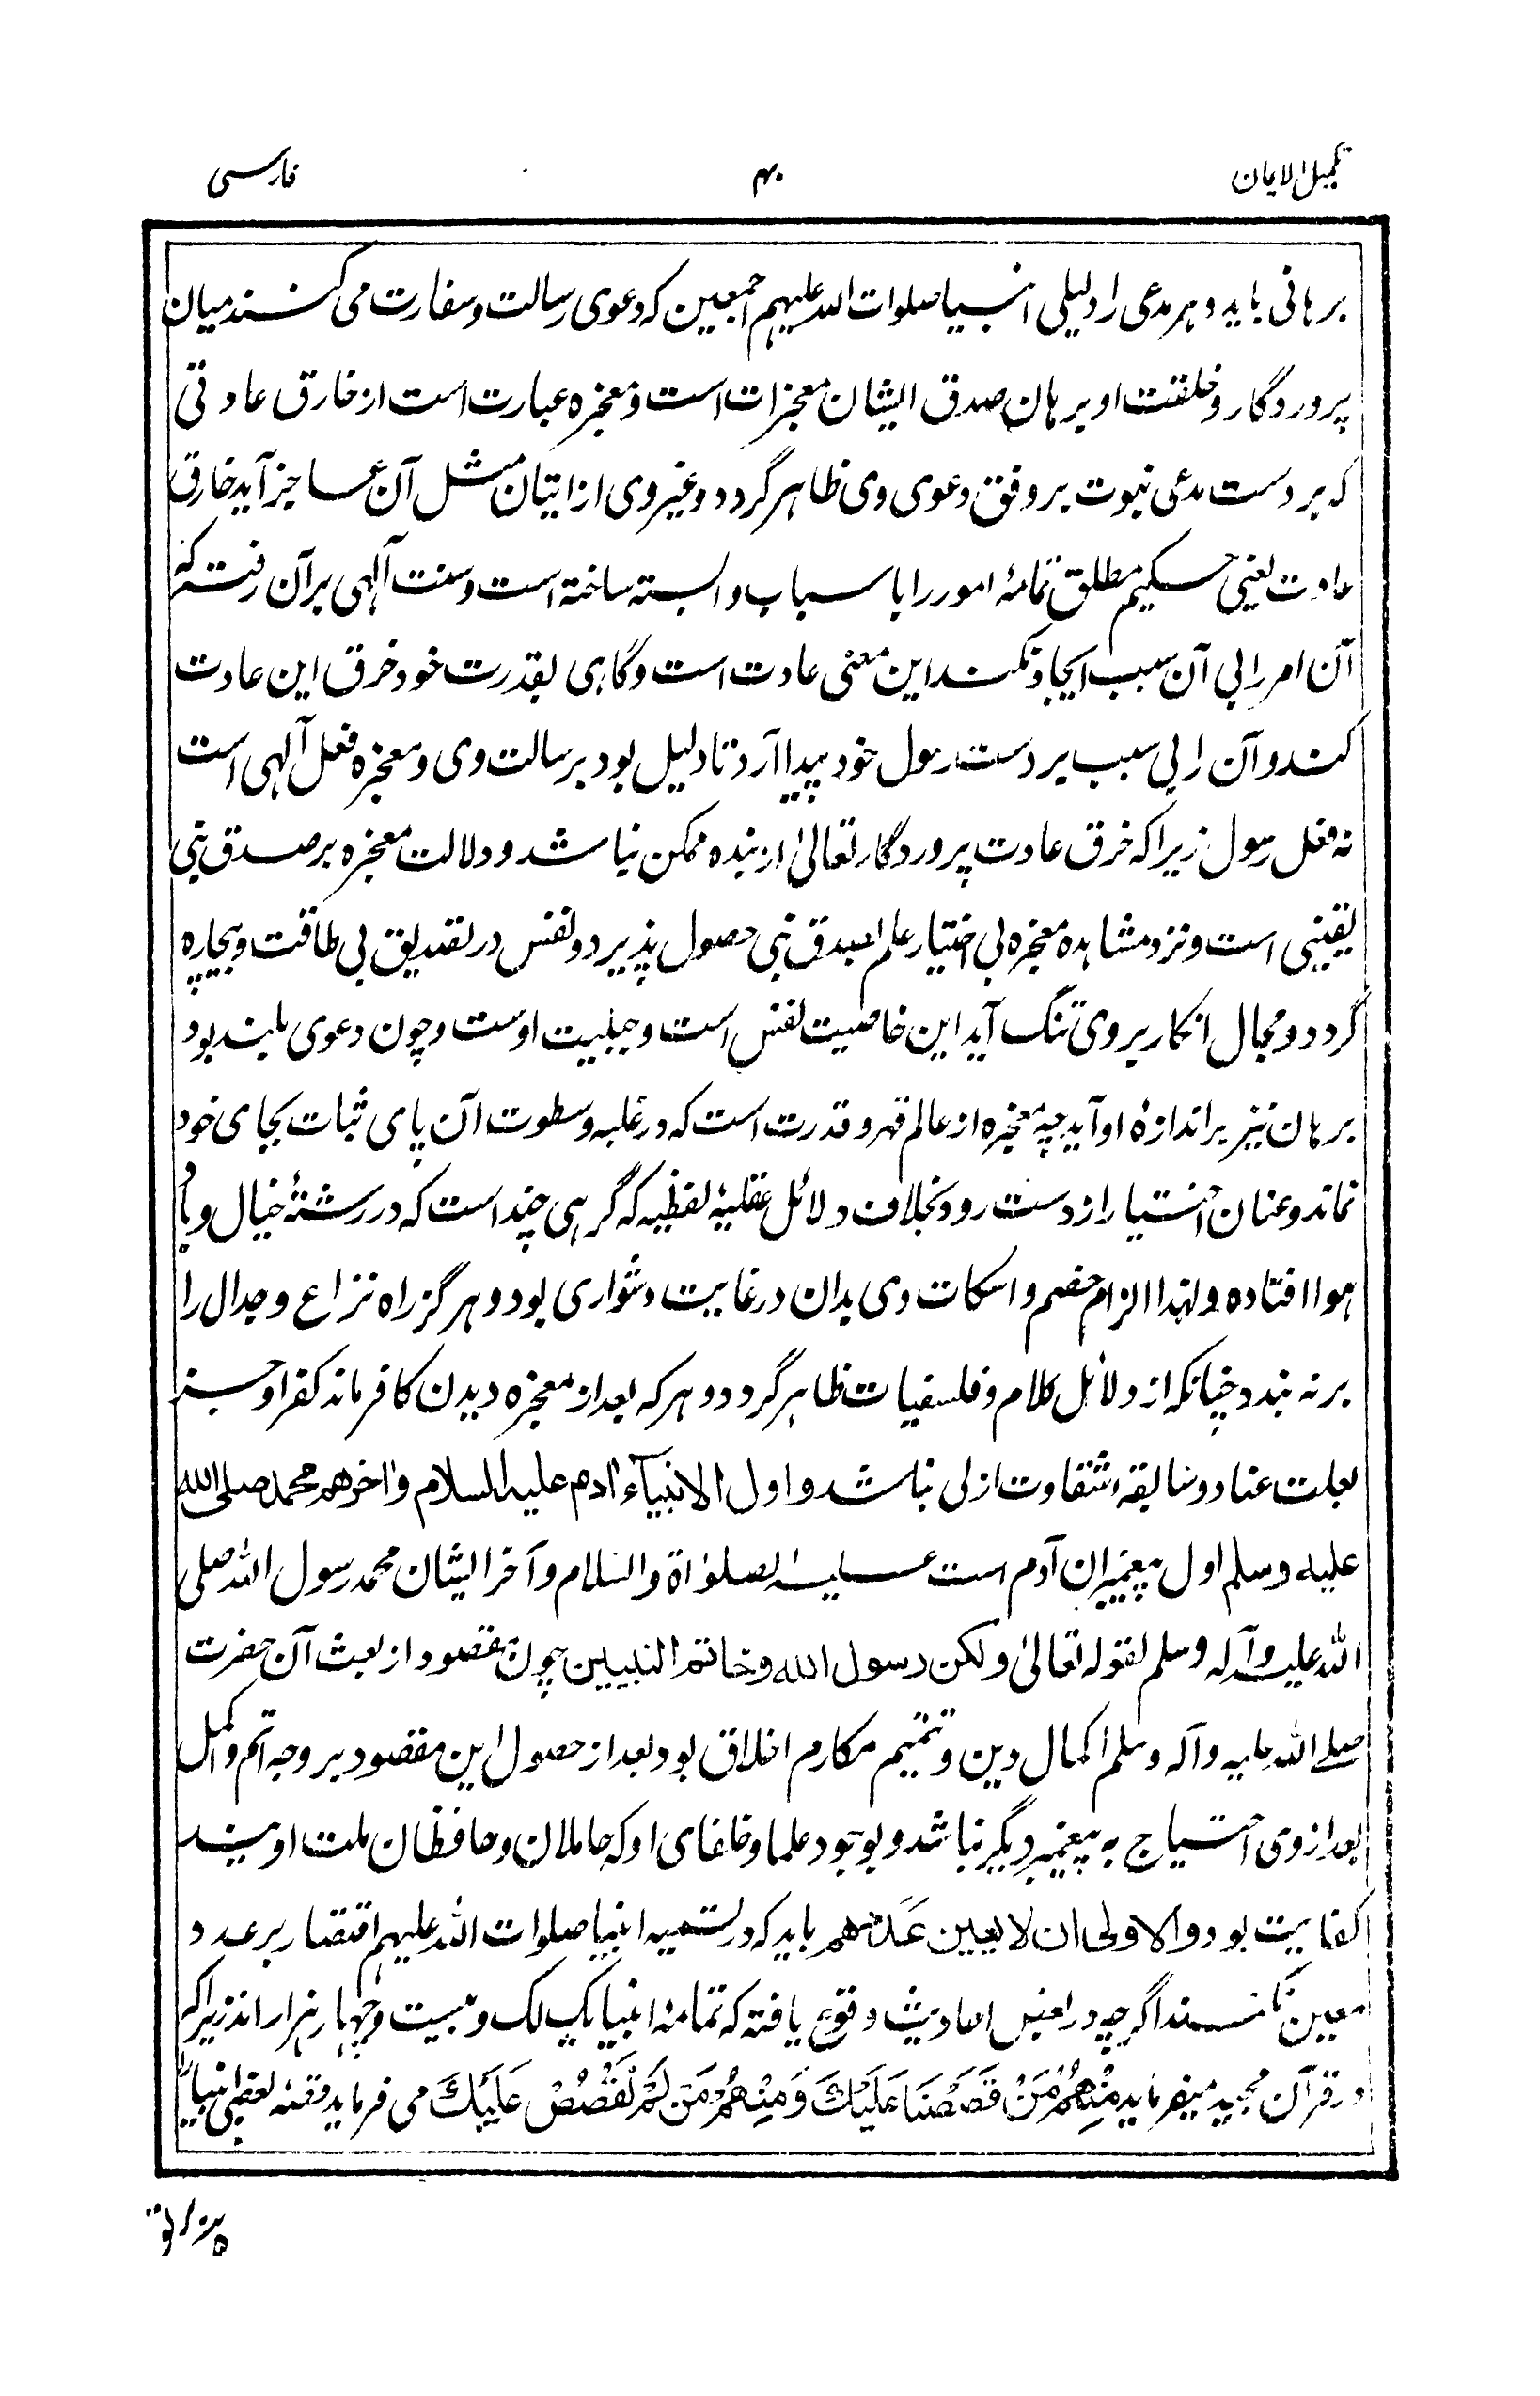 تکمیل الایمان ۴۰ فارسی
برهانی باید و هر مدعی را دلیلی انبیا صلوات الله علیهم اجمعین که دعوی رسالت و سفارت می کنند میان
پروردگار و خلقت او برهان صدق ایشان معجزات است و معجزه عبارت است از خارق عادتی
که بر دست مدعی نبوت بر وفق دعوی وی ظاهر گردد و غیر وی از اتیان مثل آن عاجز آید خارق
عادت یعنی حکیم مطلق تمامهٔ امور را باسباب وابسته ساخته است و سنت آلهی بر آن رفته که
آن امر را بی آن سبب ایجاد نکند این معنی عادت است و گاهی بقدرت خود خرق این عادت
کند و آن را بی سبب بر دست رسول خود پیدا آرد تا دلیل بود بر رسالت وی و معجزه فعل آلهی است
نه فعل رسول زیرا که خرق عادت پروردگار تعالیٰ از بنده ممکن نباشد و دلالت معجزه بر صدق نبی
یقینی است و نزد مشاهده معجزه بی اختیار علم بصدق نبی حصول پذیرد و نفس در تصدیق بی طاقت و بیچاره
گردد و مجال انکار بر وی تنگ آید این خاصیت نفس است و جبلیت اوست و چون دعوی بلند بود
برهان نیز براندازهٔ او آید چه معجزه از عالم قهر و قدرت است که در غلبه و سطوت آن پای ثبات بجای خود
نماند و عنان اختیار از دست رود بخلاف دلائل عقلیهٔ لفظیه که گرهی چند است که در رشتهٔ خیال و باد
هوا افتاده ولهذا الزام خصم و اسکات وی بدان در غایت دشواری بود و هرگز راه نزاع و جدال را
بر نه بندد چنانکه از دلائل کلام و فلسفیات ظاهر گردد و هر که بعد از معجزه دیدن کافر ماند کفر او جز
بعلت عناد و سابقه شقاوت ازلی نباشد و اول الانبیآء آدم علیه السلام و اخرهم محمد صلی الله
علیه وسلم اول پیغمبران آدم است علیه الصلوٰاة والسلام و آخر ایشان محمد رسول الله صلی
الله علیه وآله وسلم لقوله تعالیٰ ولکن رسول الله وخاتم النبیین چون مقصود از بعث آن حضرت
صلے الله علیه وآله وسلم اکمال دین و تتمیم مکارم اخلاق بود بعد از حصول این مقصود بر وجه اتم و اکمل
بعد از وی احتیاج به پیغمبر دیگر نباشد و بوجود علما و خلفای او که حاملان و حافظان ملت اویند
کفایت بود والاولی ان لا یعین عَدَدهم باید که در تسمیه انبیا صلوات الله علیهم اقتصار بر عدد
معین نکنند اگرچه در بعض احادیث وقوع یافته که تمامهٔ انبیا یک لک و بیست و چهار هزار اند زیرا که
در قرآن مجید میفرماید مِنْهُمْ مَنْ قَصَصْنَا عَلَیْكَ وَمِنْهُمْ مَنْ لَمْ نَقْصُصْ عَلَیْكَ می فرماید قصهٔ بعضی انبیا را